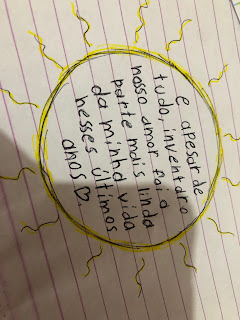 e apesar de
tudo, inventaro
nosso amor foi a
parte mais linda
da minha vida
nesses últimos
anos♡.